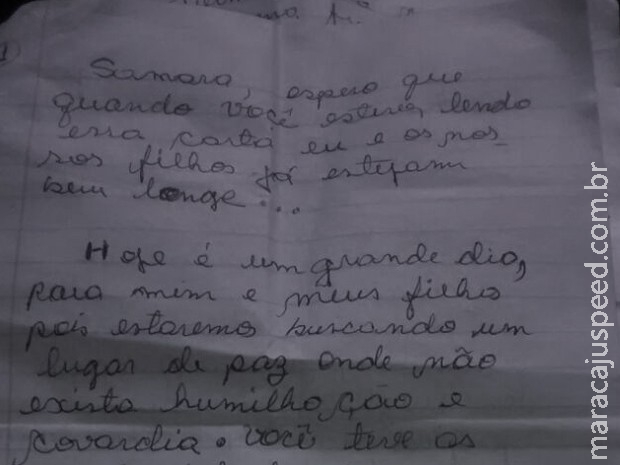 Samara, espero que
quando você estiver lendo
essa carta eu e os nos_
sos filhos já estejam
bem longe...
Hoje é um grande dia,
para mim e meus filho
pois estaremos buscando um
lugar de paz onde não
exista humilhação e
covardia. Você teve os
maracajuspeed.com.br